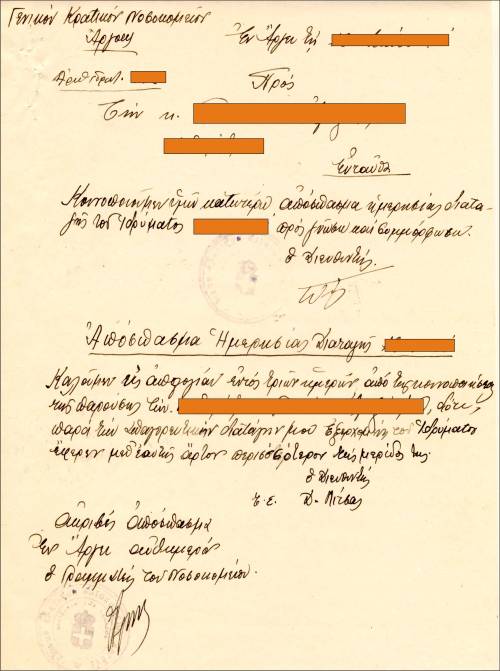 Γενικόν Κρατικόν Νοσοκομείον
Άργους
Ἐν Ἄργει τῇ
Ἀριθ. πρωτ.
Πρός
Τὴν κ.
Ἐνταῦθα
Κοινοποιοῦμεν ὑμῖν κατωτέρω ἀπόσπασμα ἡμερησίας διατα-
γῆς τοῦ Ἱδρύματος πρὸς γνῶσιν καὶ συμμόρφωσιν.
ὁ Διευθυντής.
Ἀπόσπασμα Ἡμερησίας Διαταγῆς
Καλοῦμεν εἰς ἀπολογίαν ἐντὸς τριῶν ἡμερῶν ἀπὸ τῆς κοινοποιήσεως
τῆς παρούσης τὴν , διότι
παρὰ τὴν ἀπαγορευτικὴν διαταγήν μου ἐξερχομένη τοῦ Ἱδρύματος
ἔφερεν μεθ' ἑαυτῆς ἄρτον περισσότερον τῆς μερίδος της.
ὁ Διευθυντής
Τ.Σ. Δ.
Ἀκριβὲς ἀπόσπασμα
Ἐν Ἄργει αὐθημερόν
ὁ Γραμματεὺς τοῦ Νοσοκομείου.